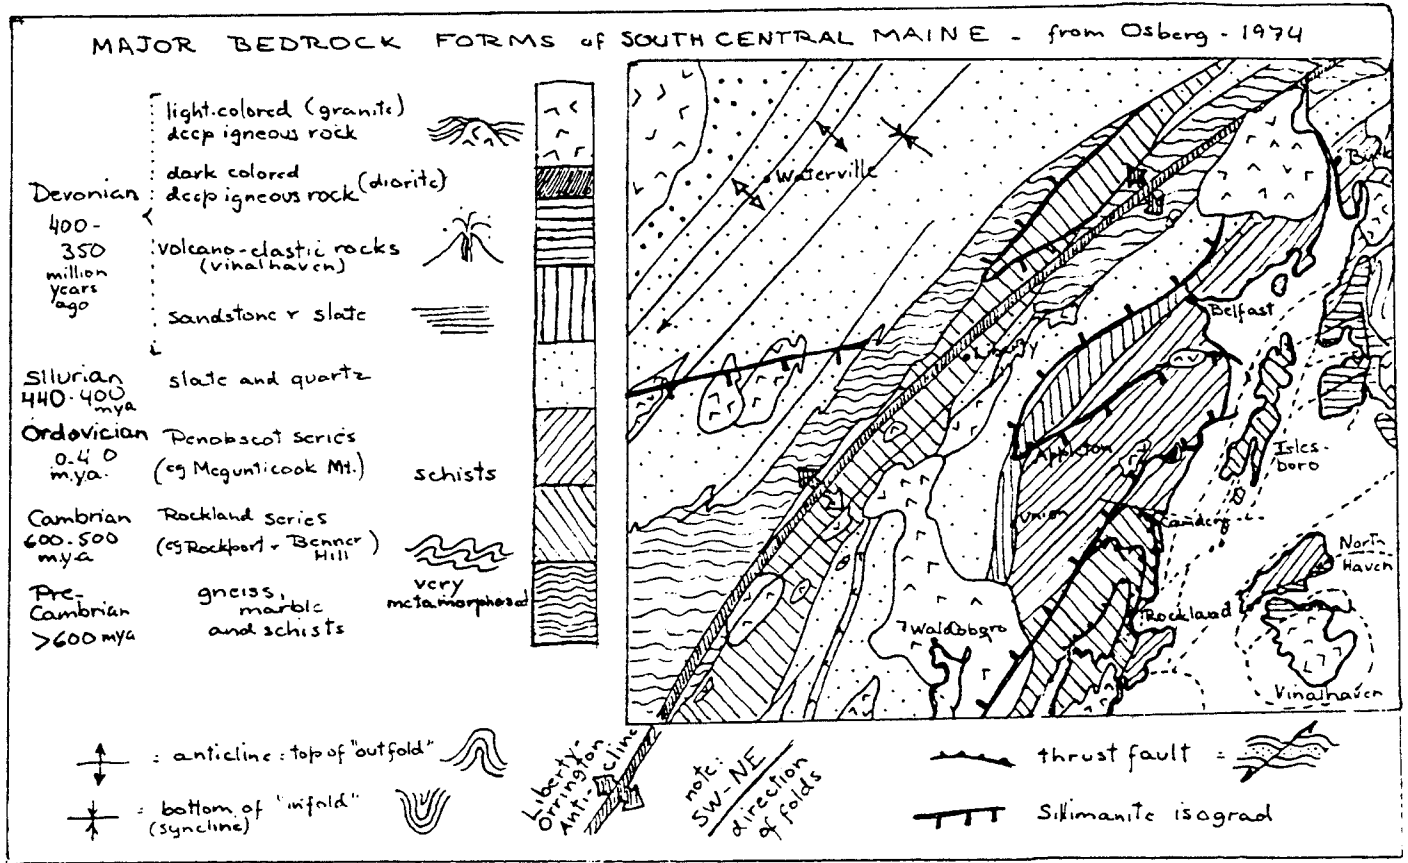 MAJOR BEDROCK FORMS of SOUTH CENTRAL MAINE - from Osberg - 1974
light-colored (granite)
deep igneous rock
dark colored
deep igneous rock (diorite)
Devonian
400-
350
million
years
ago
volcano-clastic rocks
(vinalhaven)
sandstone + slate
Silurian
440-400
mya
slate and quartz
Ordovician
0-40
m.y.a.
Penobscot series
(eg Megunticook Mt.)
schists
Cambrian
600-500
m.y.a
Rockland series
(eg Rockport + Benner
Hill)
very
metamorphosed
Pre-
Cambrian
>600 mya
gneiss,
marble
and schists
Waterville
Buck
Belfast
Liberty
Appleton
Isles-
boro
Union
Camden
North
Haven
Rockland
Waldoboro
Vinalhaven
= anticline: top of "outfold"
= bottom of "infold"
(syncline)
Liberty-
Orrington
Anti-cline
note:
SW-NE
direction
of folds
thrust fault =
Sillimanite isograd